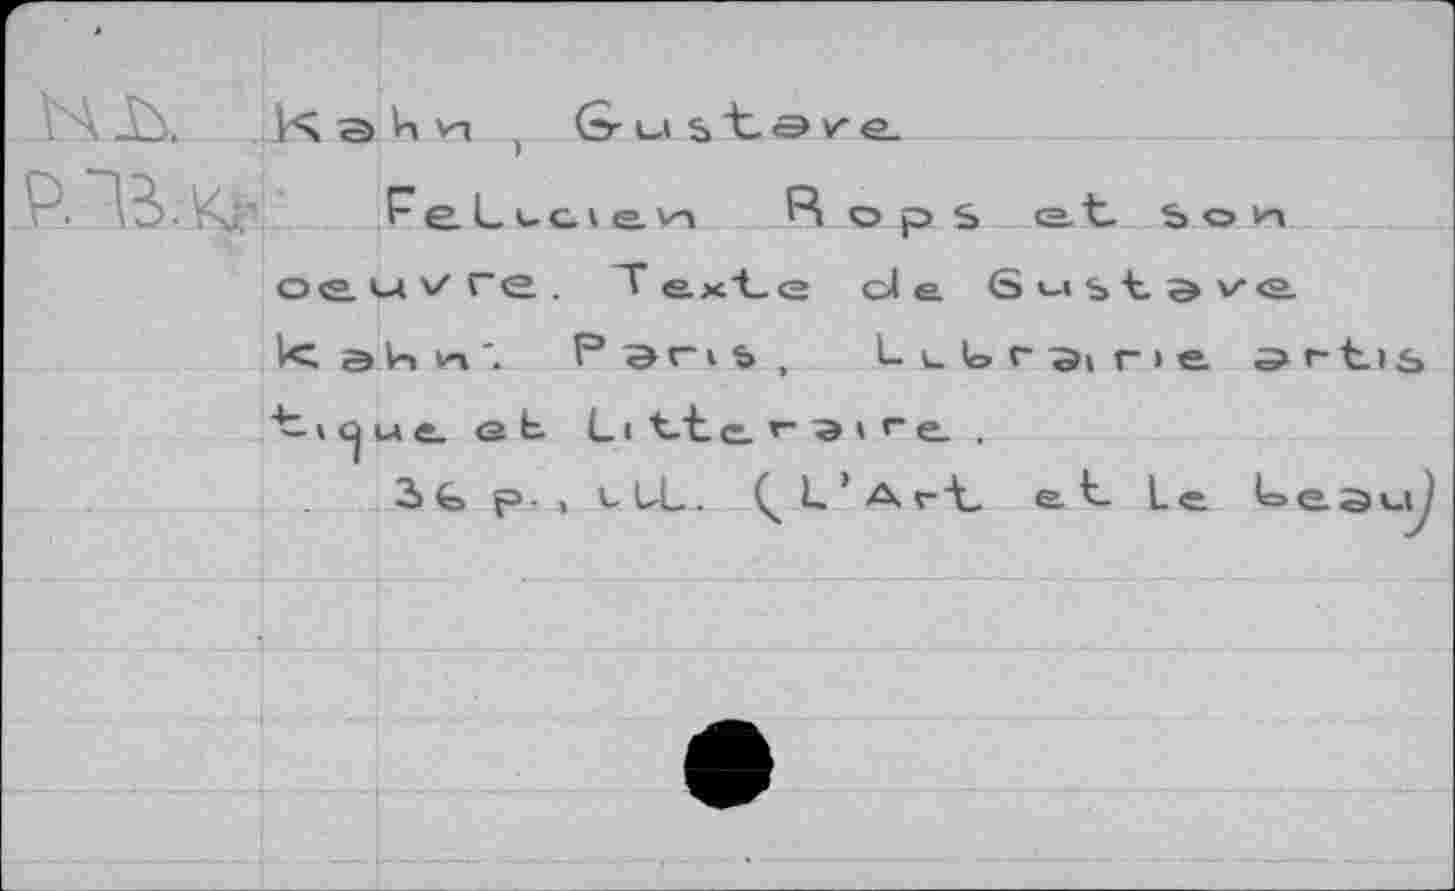 N.D. Kahn, Gustave
P.713.Kr Felicien Rops et son
oeuvre. Texte de Gustave
Kahn. Paris, Librairie artis
tique et Litteraire.
36 p., ill. (L'Art et Le beau)